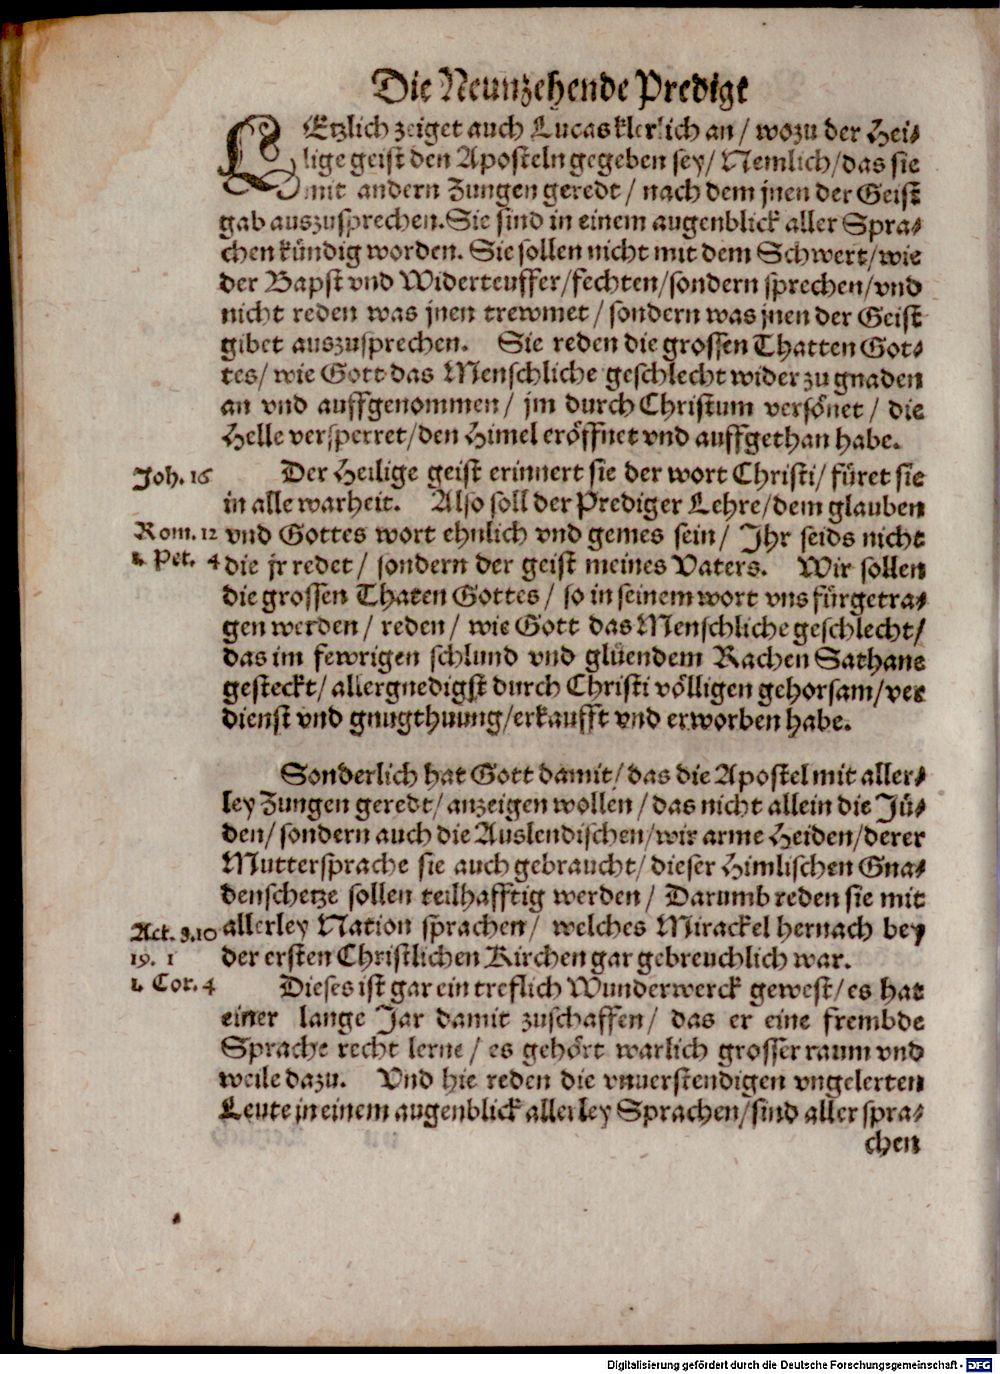 Die Neunzehende Predigt
LEtzlich zeiget auch Lucas klerlich an / wozu der Hei-
lige geist den Aposteln gegeben sey / Nemlich / das sie
mit andern Zungen geredt / nach dem jnen der Geist
gab auszusprechen. Sie sind in einem augenblick aller Spra-
chen kündig worden. Sie sollen nicht mit dem Schwert / wie
der Bapst vnd Widerteuffer / fechten / sondern sprechen / vnd
nicht reden was jnen trewmet / sondern was jnen der Geist
gibet auszusprechen. Sie reden die grossen Thatten Got-
tes / wie Gott das Menschliche geschlecht wider zu gnaden
an vnd auffgenommen / jm durch Christum versönet / die
Helle versperret / den Himel eröffnet vnd auffgethan habe.
Joh. 16 Der Heilige geist erinnert sie der wort Christi / füret sie
in alle warheit. Also soll der Prediger Lehre / dem glauben
Rom. 12 vnd Gottes wort ehnlich vnd gemes sein / Jhr seids nicht
1. Pet. 4 die jr redet / sondern der geist meines Vaters. Wir sollen
die grossen Thaten Gottes / so in seinem wort vns fürgetra-
gen werden / reden / wie Gott das Menschliche geschlecht /
das im fewrigen schlund vnd glüendem Rachen Sathans
gesteckt / allergnedigst durch Christi völligen gehorsam / ver
dienst vnd gnugthuung / erkaufft vnd erworben habe.
Sonderlich hat Gott damit / das die Apostel mit aller-
ley Zungen geredt / anzeigen wollen / das nicht allein die Jü-
den / sondern auch die Auslendischen / wir arme Heiden / derer
Muttersprache sie auch gebraucht / dieser Himlischen Gna-
denschetze sollen teilhafftig werden / Darumb reden sie mit
Act. 9.10 allerley Nation sprachen / welches Mirackel hernach bey
19. 1 der ersten Christlichen Kirchen gar gebreuchlich war.
1. Cor. 4 Dieses ist gar ein treflich Wunderwerck gewest / es hat
einer lange Jar damit zuschaffen / das er eine frembde
Sprache recht lerne / es gehört warlich grosser raum vnd
weile dazu. Vnd hie reden die vnuerstendigen vngelerten
Leute in einem augenblick allerley Sprachen / sind aller spra-
chen
Digitalisierung gefördert durch die Deutsche Forschungsgemeinschaft - DFG